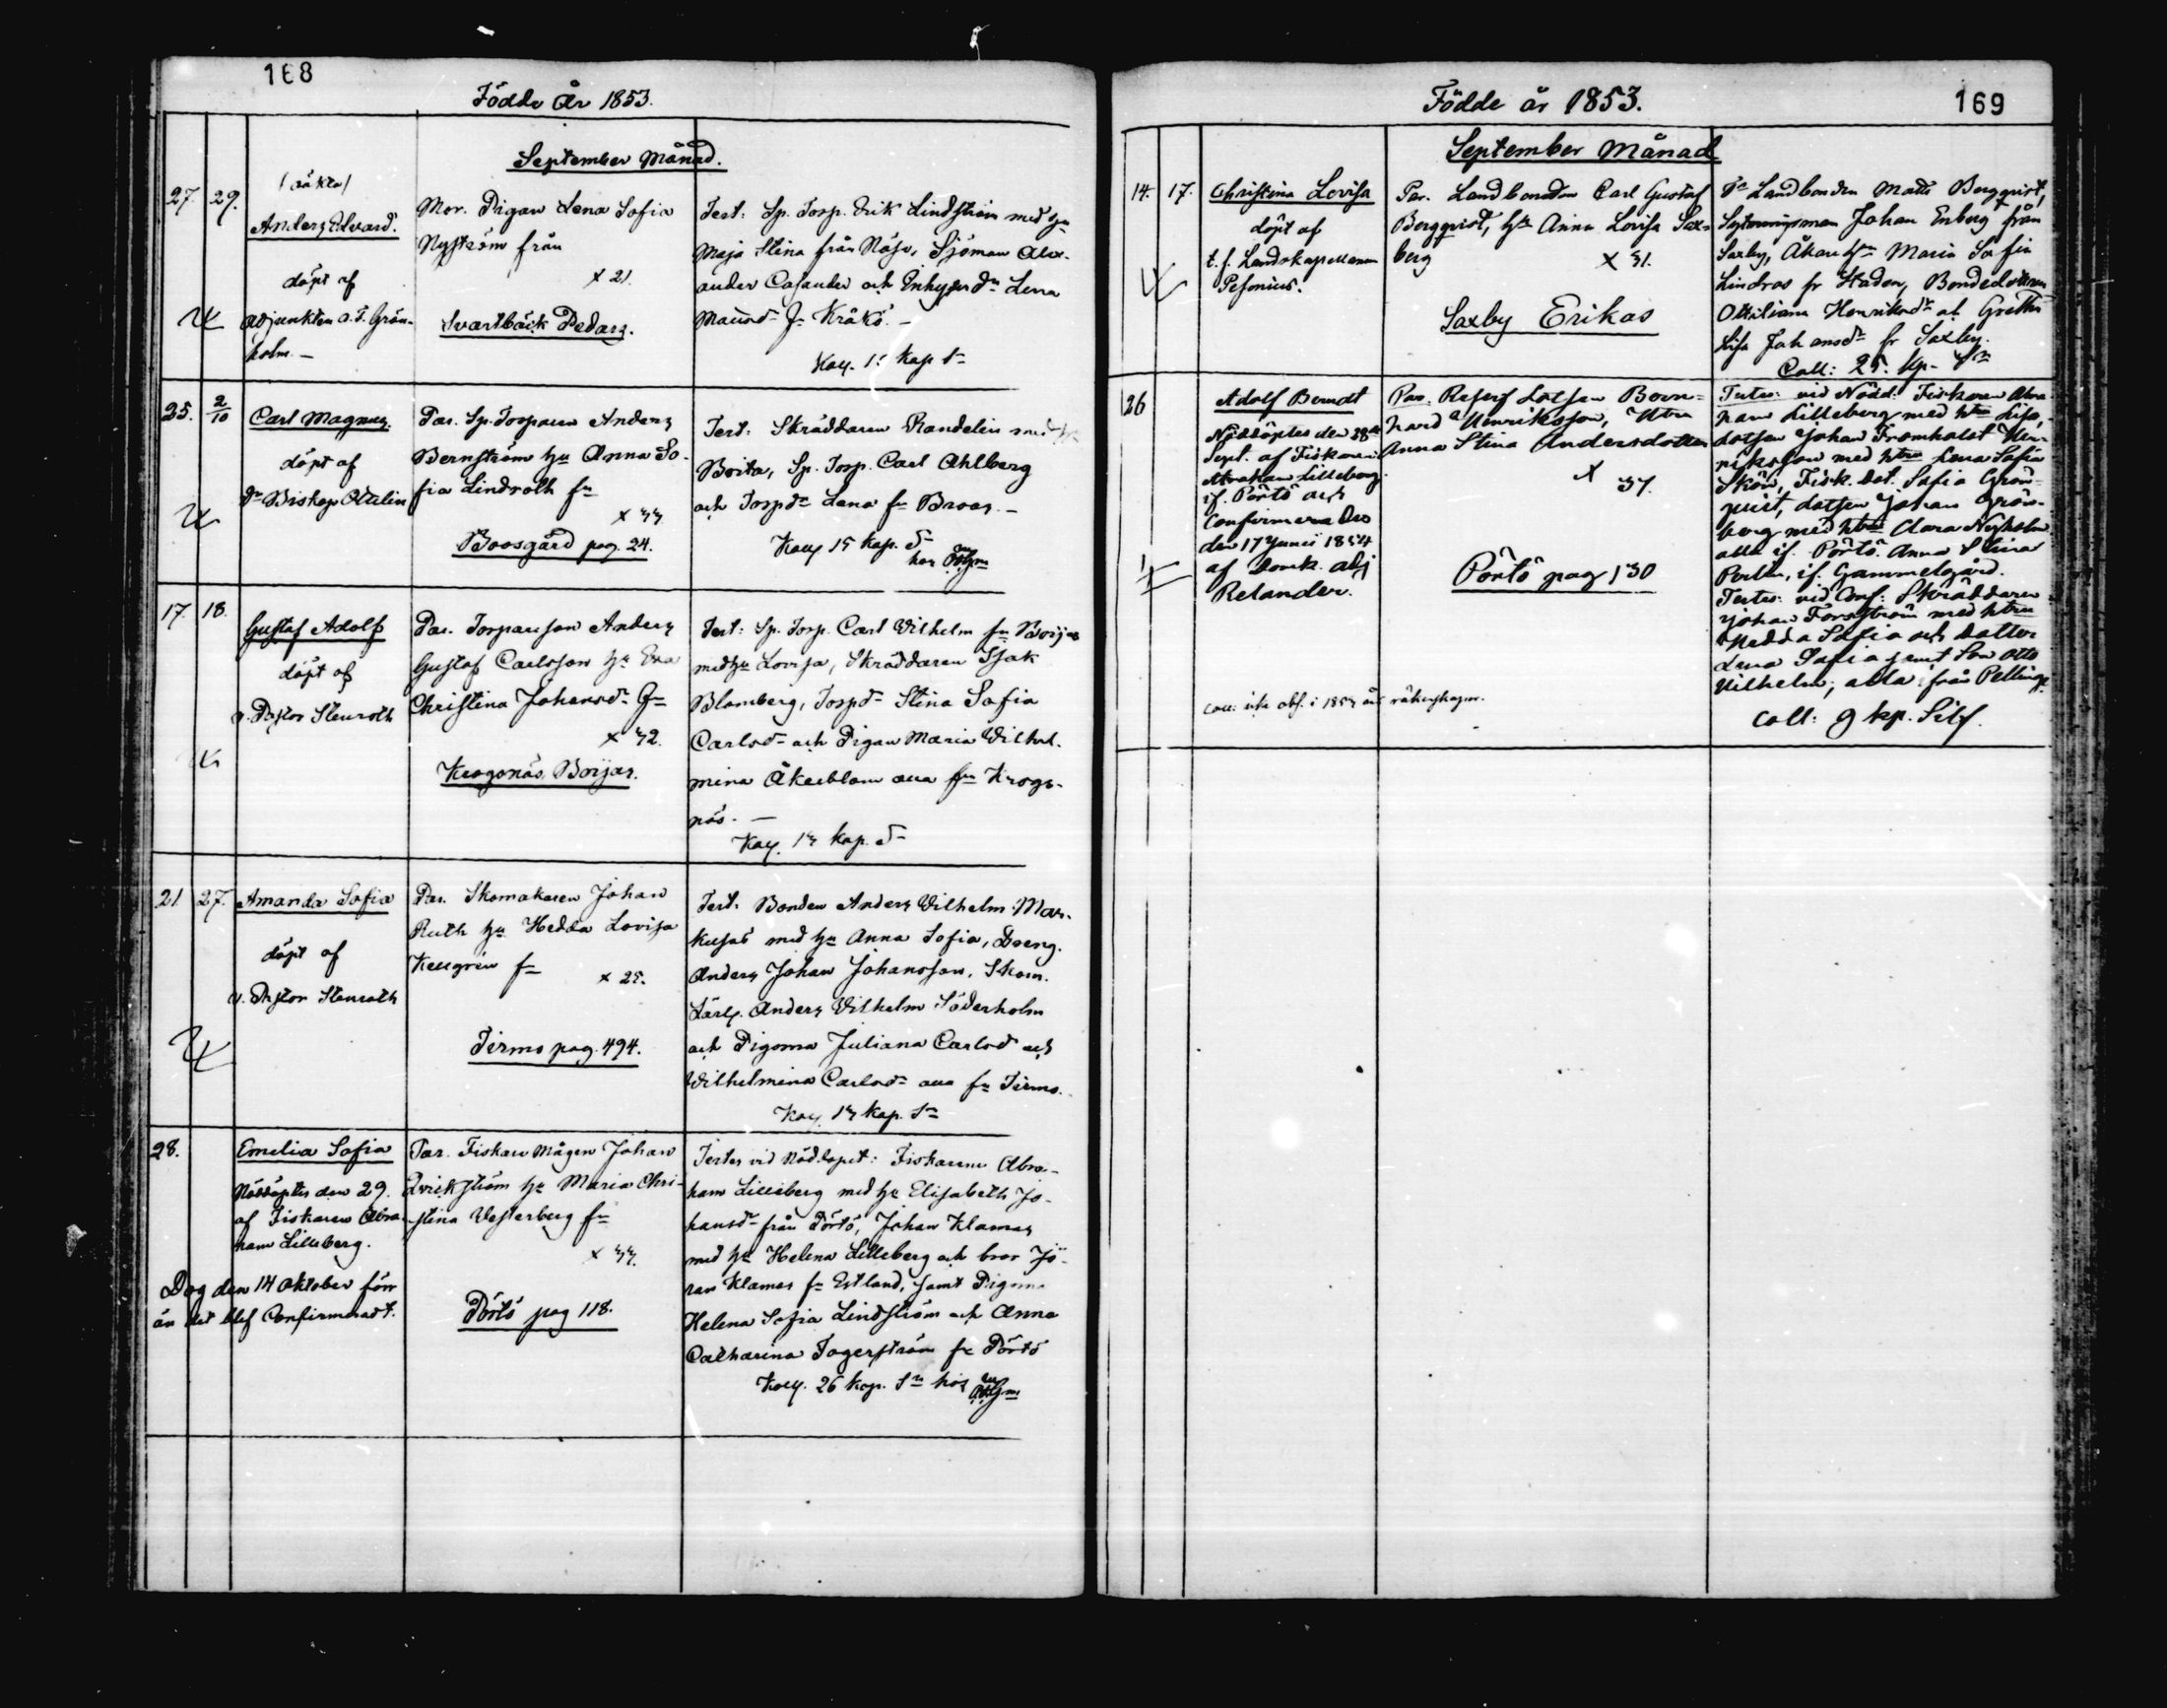 168
Födde År 1853.
September Månad.
27. 29.
Anders Edvard.
döpt af
Adjunkten a. F. Grön-
holm. —
Mor. Pigan Lena Sofia
Nyström från
x 21.
Svartbäck Pedars.
Test: Sp. Torp. Erik Lindström med hu
Maja Stina från Näse, Sjöman Alex-
ander Casander och Inhyses dr Lena
Matsdr fr Kråkö. —
25. 2/10
Carl Magnus.
döpt af
Dr Biskop Ottelin
Par. Sp. Torparen Anders
Bernström hu Anna So-
fia Lindroth fn
x 44
Boosgård pag. 24.
Test: Skräddaren Randelin med hu
Brita, Sp. Torp. Carl Ahlberg
och Torpdr Lena fn Broas. —
Koll. 15 kap. S
17. 18.
Gustaf Adolf
döpt af
v. Pastor Stenroth
Par. Torparson Anders
Gustaf Carlsson hu Eva
Christina Johansdr fn
x 42.
Krogsnäs Borjas.
Test: Sp. Torp. Carl Wilhelm fn Borjas
med hu Lovisa, Skräddaren Isak
Blomberg, Torpdr Stina Sofia
Carlsdr och Pigan Maria Wilhel-
mina Åkerblom alla fn Krogs-
näs. —
Koll. 14 kap. S
21 27.
Amanda Sofia
döpt af
v. Pastor Stenroth
Par. Skomakaren Johan
Ruth hu Hedda Lovisa
Kellgrén fn
x 25.
Tirmo pag. 494.
Test: Bonden Anders Wilhelm Mar-
kusas med hu Anna Sofia, Dreng.
Anders Johan Johansson, Skom.
Lärl. Anders Wilhelm Söderholm
och Pigorna Juliana Carlsdr och
Wilhelmina Carlsdr alla fn Tirmo.
Koll. 14 kap. Sr
28.
Emelia Sofia
Nöddöptes den 29.
af Fiskaren Abra-
ham Lilleberg.
Dog den 14 Oktober förr
än det blef Confirmeradt.
Par. Fiskare Mågen Johan
Qvickström hu Maria Chri-
stina Westerberg fn
x 44.
Pörtö pag 118.
Testes vid Nöddopet: Fiskaren Abra-
ham Lilleberg med hu Elisabeth Jo-
hansdr från Pörtö, Johan Klamas
med hu Helena Lilleberg och bror Jö-
ran Klamas fr Estland, samt Pigorna
Helena Sofia Lindström och Anna
Catharina Fagerström fr Pörtö
Koll. 26 kop. Sr hos
Födde år 1853.
169
September Månad
14. 17.
Christina Lovisa
döpt af
t. f. Landskapellanen
Pesonius.
Par. Landbonden Carl Gustaf
Bergqvist, hu Anna Lovisa Sax-
berg
x 31.
Saxby Erikas
Landbonden Matts Bergqvist,
Johan Enberg från
Saxby, Maria Sofia
Lindros fr Staden, Bondedottren
Ottiliana Henriksdr och Gretha
Lisa Johansdr fr Saxby.
Coll: 25. kp. Sr
26
Adolf Berndt
Nöddöptes den 28de
Sept. af Fiskaren
Abraham Lilleberg
if. Pörtö och
Confirmerades
den 17 Junii 1854
af Domk. adj
Relander.
Par. Reserf Lotsen Bern-
hard Henriksson, Hustru
Anna Stina Andersdotter
x 37.
Pörtö pag 130
Testes: vid Nödd: Fiskaren Abra
ham Lilleberg med htru Lisa,
Lotsen Johan Fromholdt Hen-
riksson med htru Lena Sofia
Skön, Fisk. Dot. Sofia Grön-
qvist, Lotsen Johan Grön-
berg med htru Clara Nyholm
alla if. Pörtö. Anna Stina
if. Gammelgård.
Testes: vid Conf: Skräddaren
Johan Forsström med htru
Hedda Sofia och dotter
Lena Sofia samt Son Otto
Vilhelm, alla från Pellinge.
Coll: 9 kp. Silf.
Coll: ute obs. i 1854 års räkenskaper.